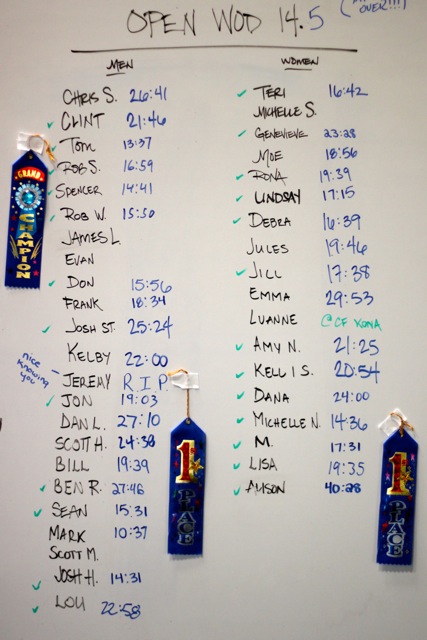 OPEN WOD 14.5
OVER!!!)
MEN
CHRIS S. 26:41
CLINT 21:46
TOM 13:37
ROB S. 16:59
SPENCER 14:41
ROB W. 15:50
JAMES L
EVAN
DON 15:56
FRANK 18:34
JOSH ST. 25:24
KELBY 22:00
nice knowing you - JEREMY R I P
JON 19:03
DAN L. 27:10
SCOTT H. 24:38
BILL 19:39
BEN R. 27:46
SEAN 15:31
MARK 10:37
SCOTT M.
JOSH H. 14:31
LOU 22:58
WOMEN
TERI 16:42
MICHELLE S.
GENEVIEVE 23:28
MOE 18:56
RONA 19:39
LINDSAY 17:15
DEBRA 16:39
JULES 19:46
JILL 17:38
EMMA 29:53
LUANNE @CF KONA
AMY N. 21:25
KELLI S. 20:54
DANA 24:00
MICHELLE N. 14:36
M. 17:31
LISA 19:35
ALISON 40:28
GRAND
CHAMPION
1st
PLACE
1st
PLACE